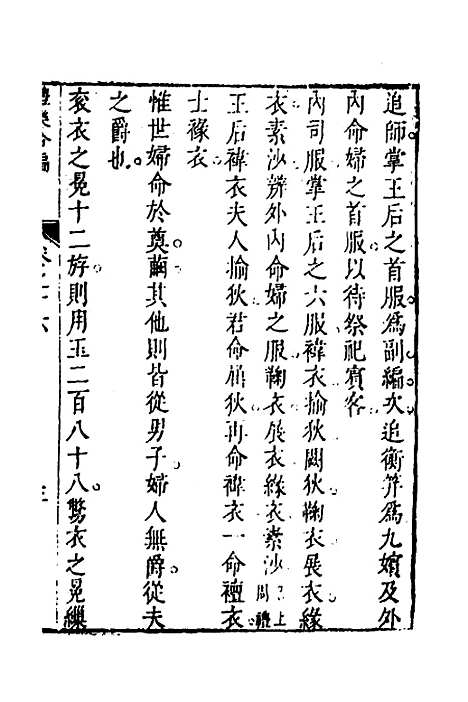 追師掌王后之首服爲副編次追衡笄爲九嬪及外
內命婦之首服以待祭祀賓客
內司服掌王后之六服褘衣揄狄闕狄鞠衣展衣緣
衣素沙辨外內命婦之服鞠衣展衣緣衣素沙已上周禮
王后褘衣夫人揄狄君命屈狄再命褘衣一命襢衣
士褖衣
惟世婦命於奠繭其他則皆從男子婦人無爵從夫
之爵也
衮衣之冕十二斿則用玉二百八十八鷩衣之冕繅
禮樂合編
卷之十六
三